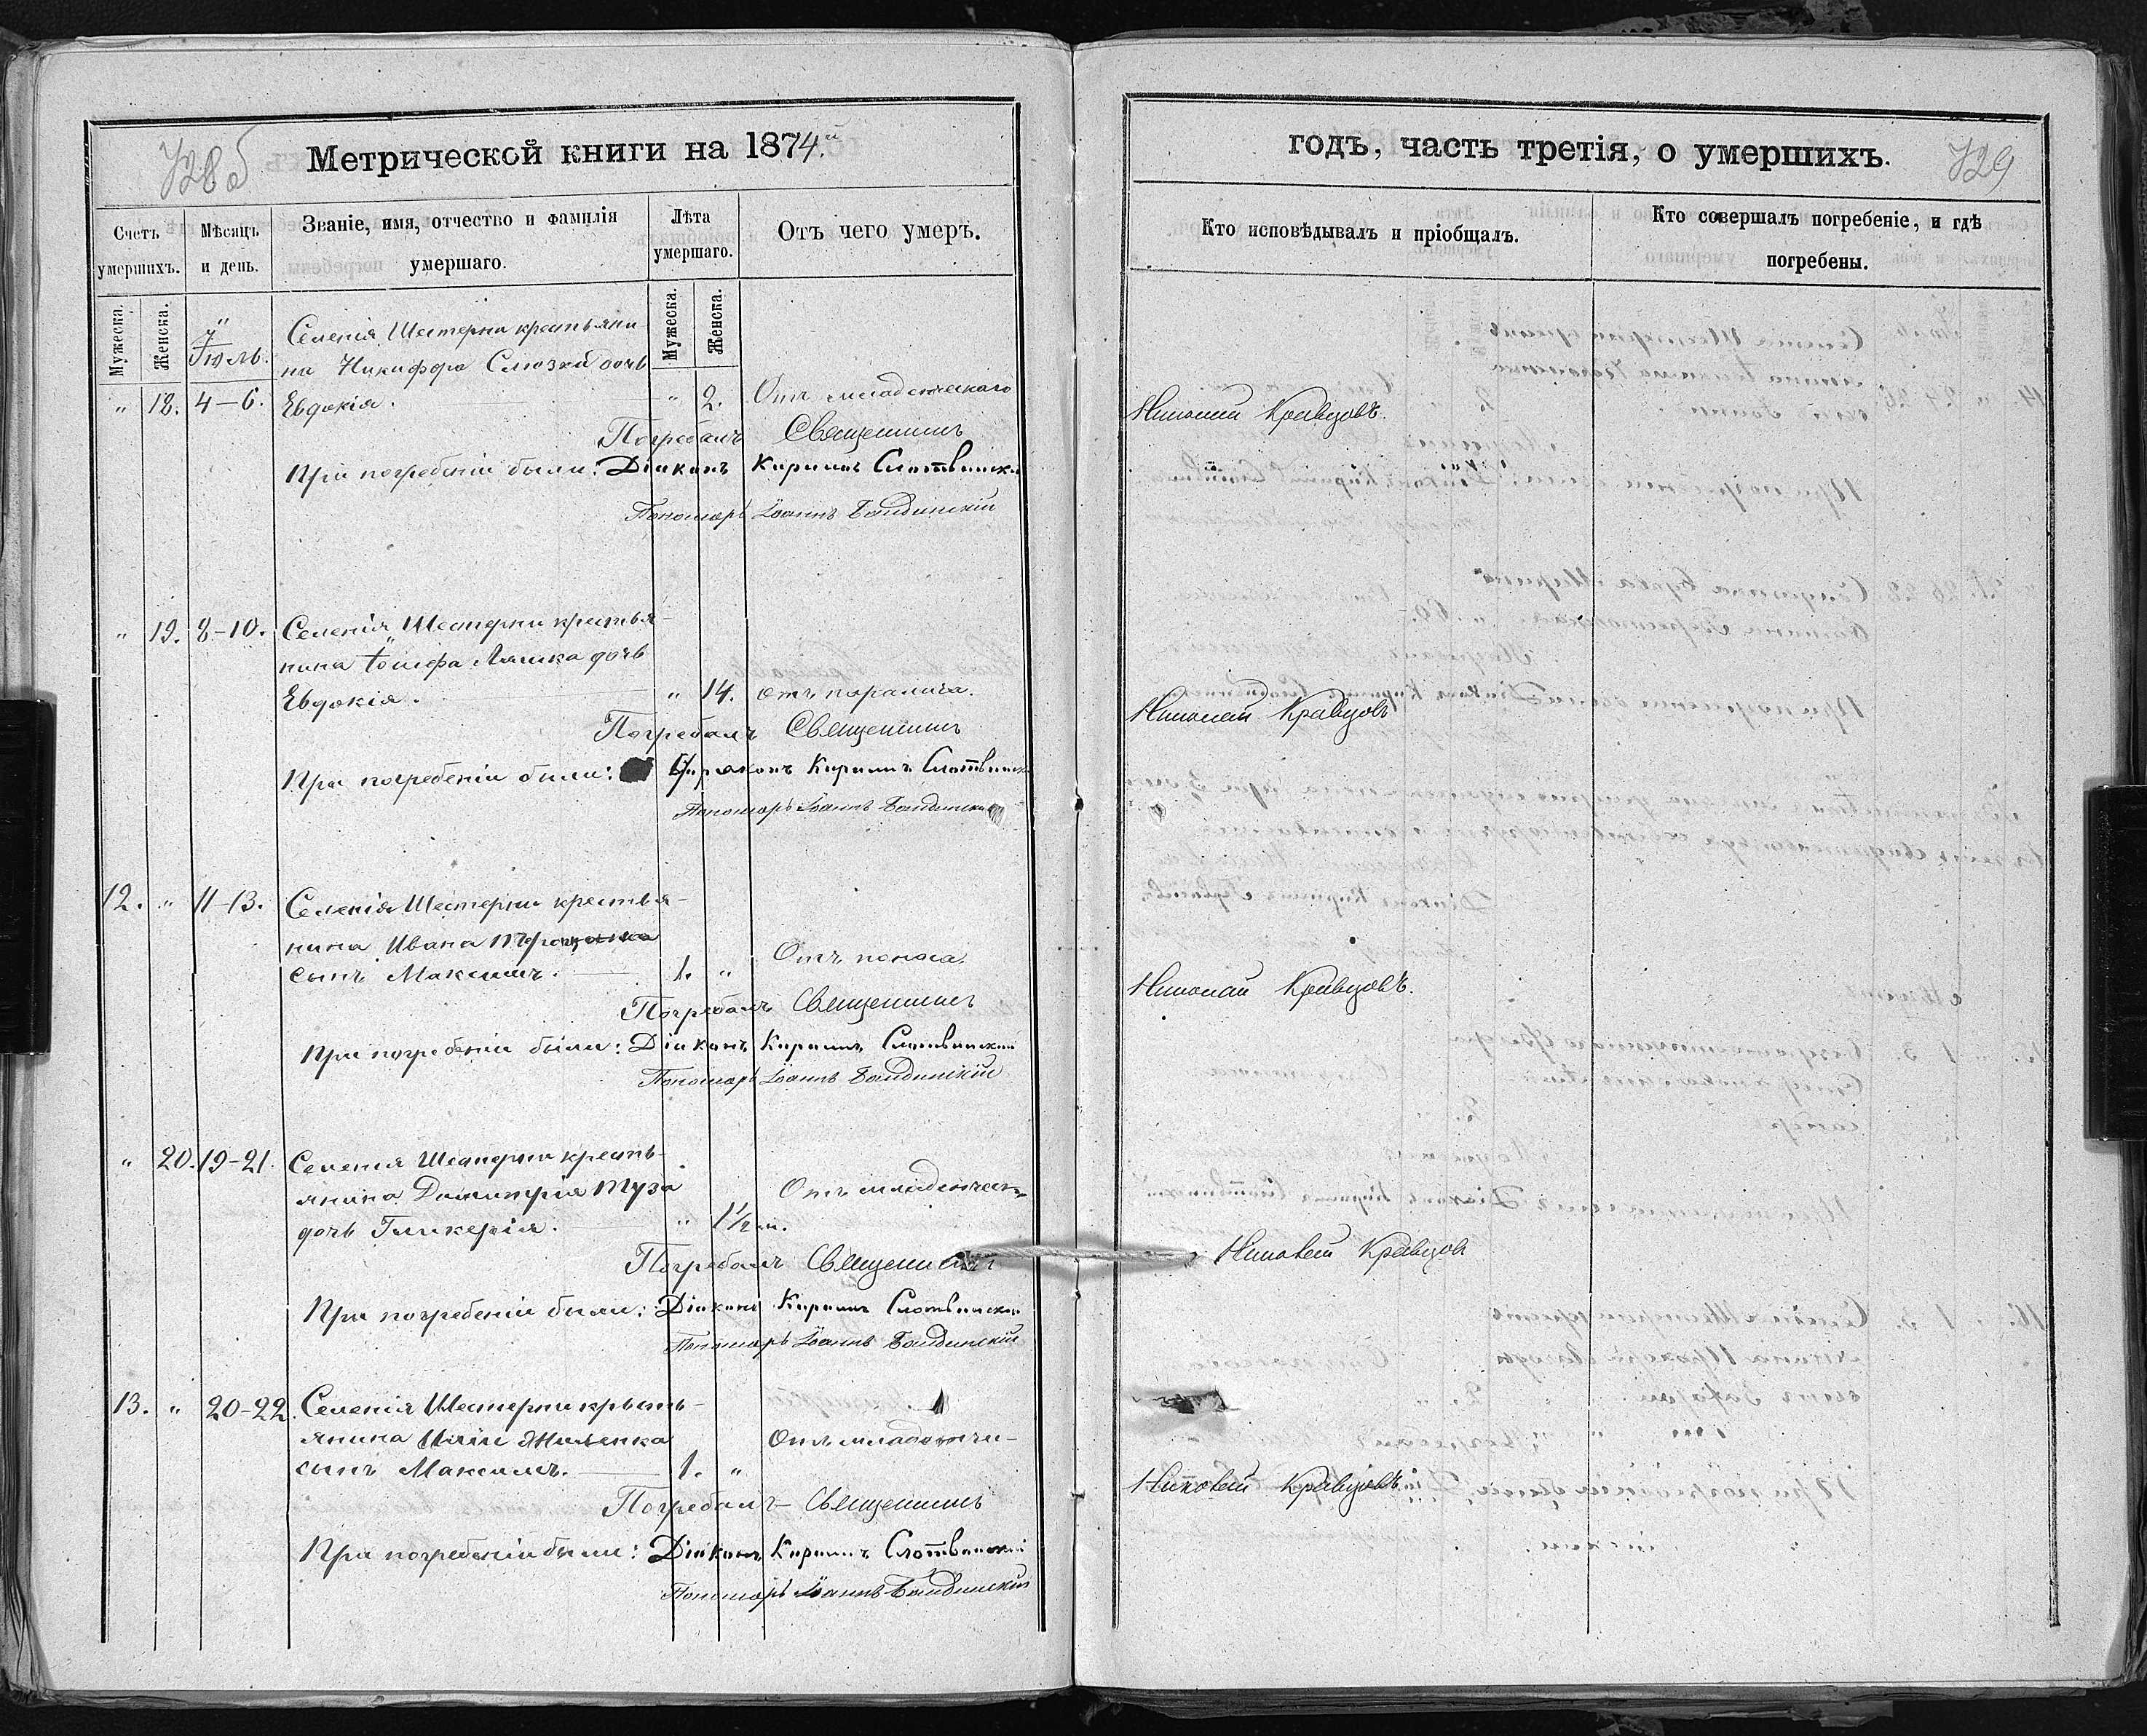 728 об
Метрической книги на 1874.й
Счетъ умершихъ.
Мѣсяцъ и день.
Званіе, имя, отчество и фамилія умершаго.
Лѣта умершаго.
Отъ чего умеръ.
Мужеска.
Женска.
Мужеска.
Женска.
Іюль.
Селенія Шестерни крестьяни-
на Никифора Слюзки дочь
" 18. 4-6. Евдокія. " 2. Отъ младенческаго
Погребалъ Священникъ
При погребеніи были: Діаконъ Кириллъ Слотвинскій
Пономарь Іоаннъ Бандинскій
" 19. 8-10. Селенія Шестерни крестья-
нина Іосифа Ляшка дочь
Евдокія. " 14. отъ паралича.
Погребалъ Священникъ
При погребеніи были: Кириллъ Слотвинскій
Пономарь Іоаннъ Бандинскій
12. " 11-13. Селенія Шестерни крестья-
нина Ивана
сынъ Максимъ. 1. " Отъ поноса.
Погребалъ Священникъ
При погребеніи были: Діаконъ Кириллъ Слотвинскій
Пономарь Іоаннъ Бандинскій
" 20. 19-21. Селенія Шестерни кресть-
янина Димитрія Туза
дочь Гликерія. " 1½ м. Отъ младенческ.
Погребалъ Священникъ
При погребеніи были: Діаконъ Кириллъ Слотвинскій
Пономарь Іоаннъ Бандинскій
13. " 20-22. Селенія Шестерни кресть-
янина Иліи
сынъ Максимъ. 1. " Отъ младенче-
Погребалъ Священникъ
При погребеніи были: Діаконъ Кириллъ Слотвинскій
Пономарь Іоаннъ Бандинскій
годъ, часть третія, о умершихъ.
729
Кто исповѣдывалъ и пріобщалъ.
Кто совершалъ погребеніе, и гдѣ погребены.
Николай Кравцовъ.
Николай Кравцовъ
Николай Кравцовъ.
Николай Кравцовъ
Николай Кравцовъ